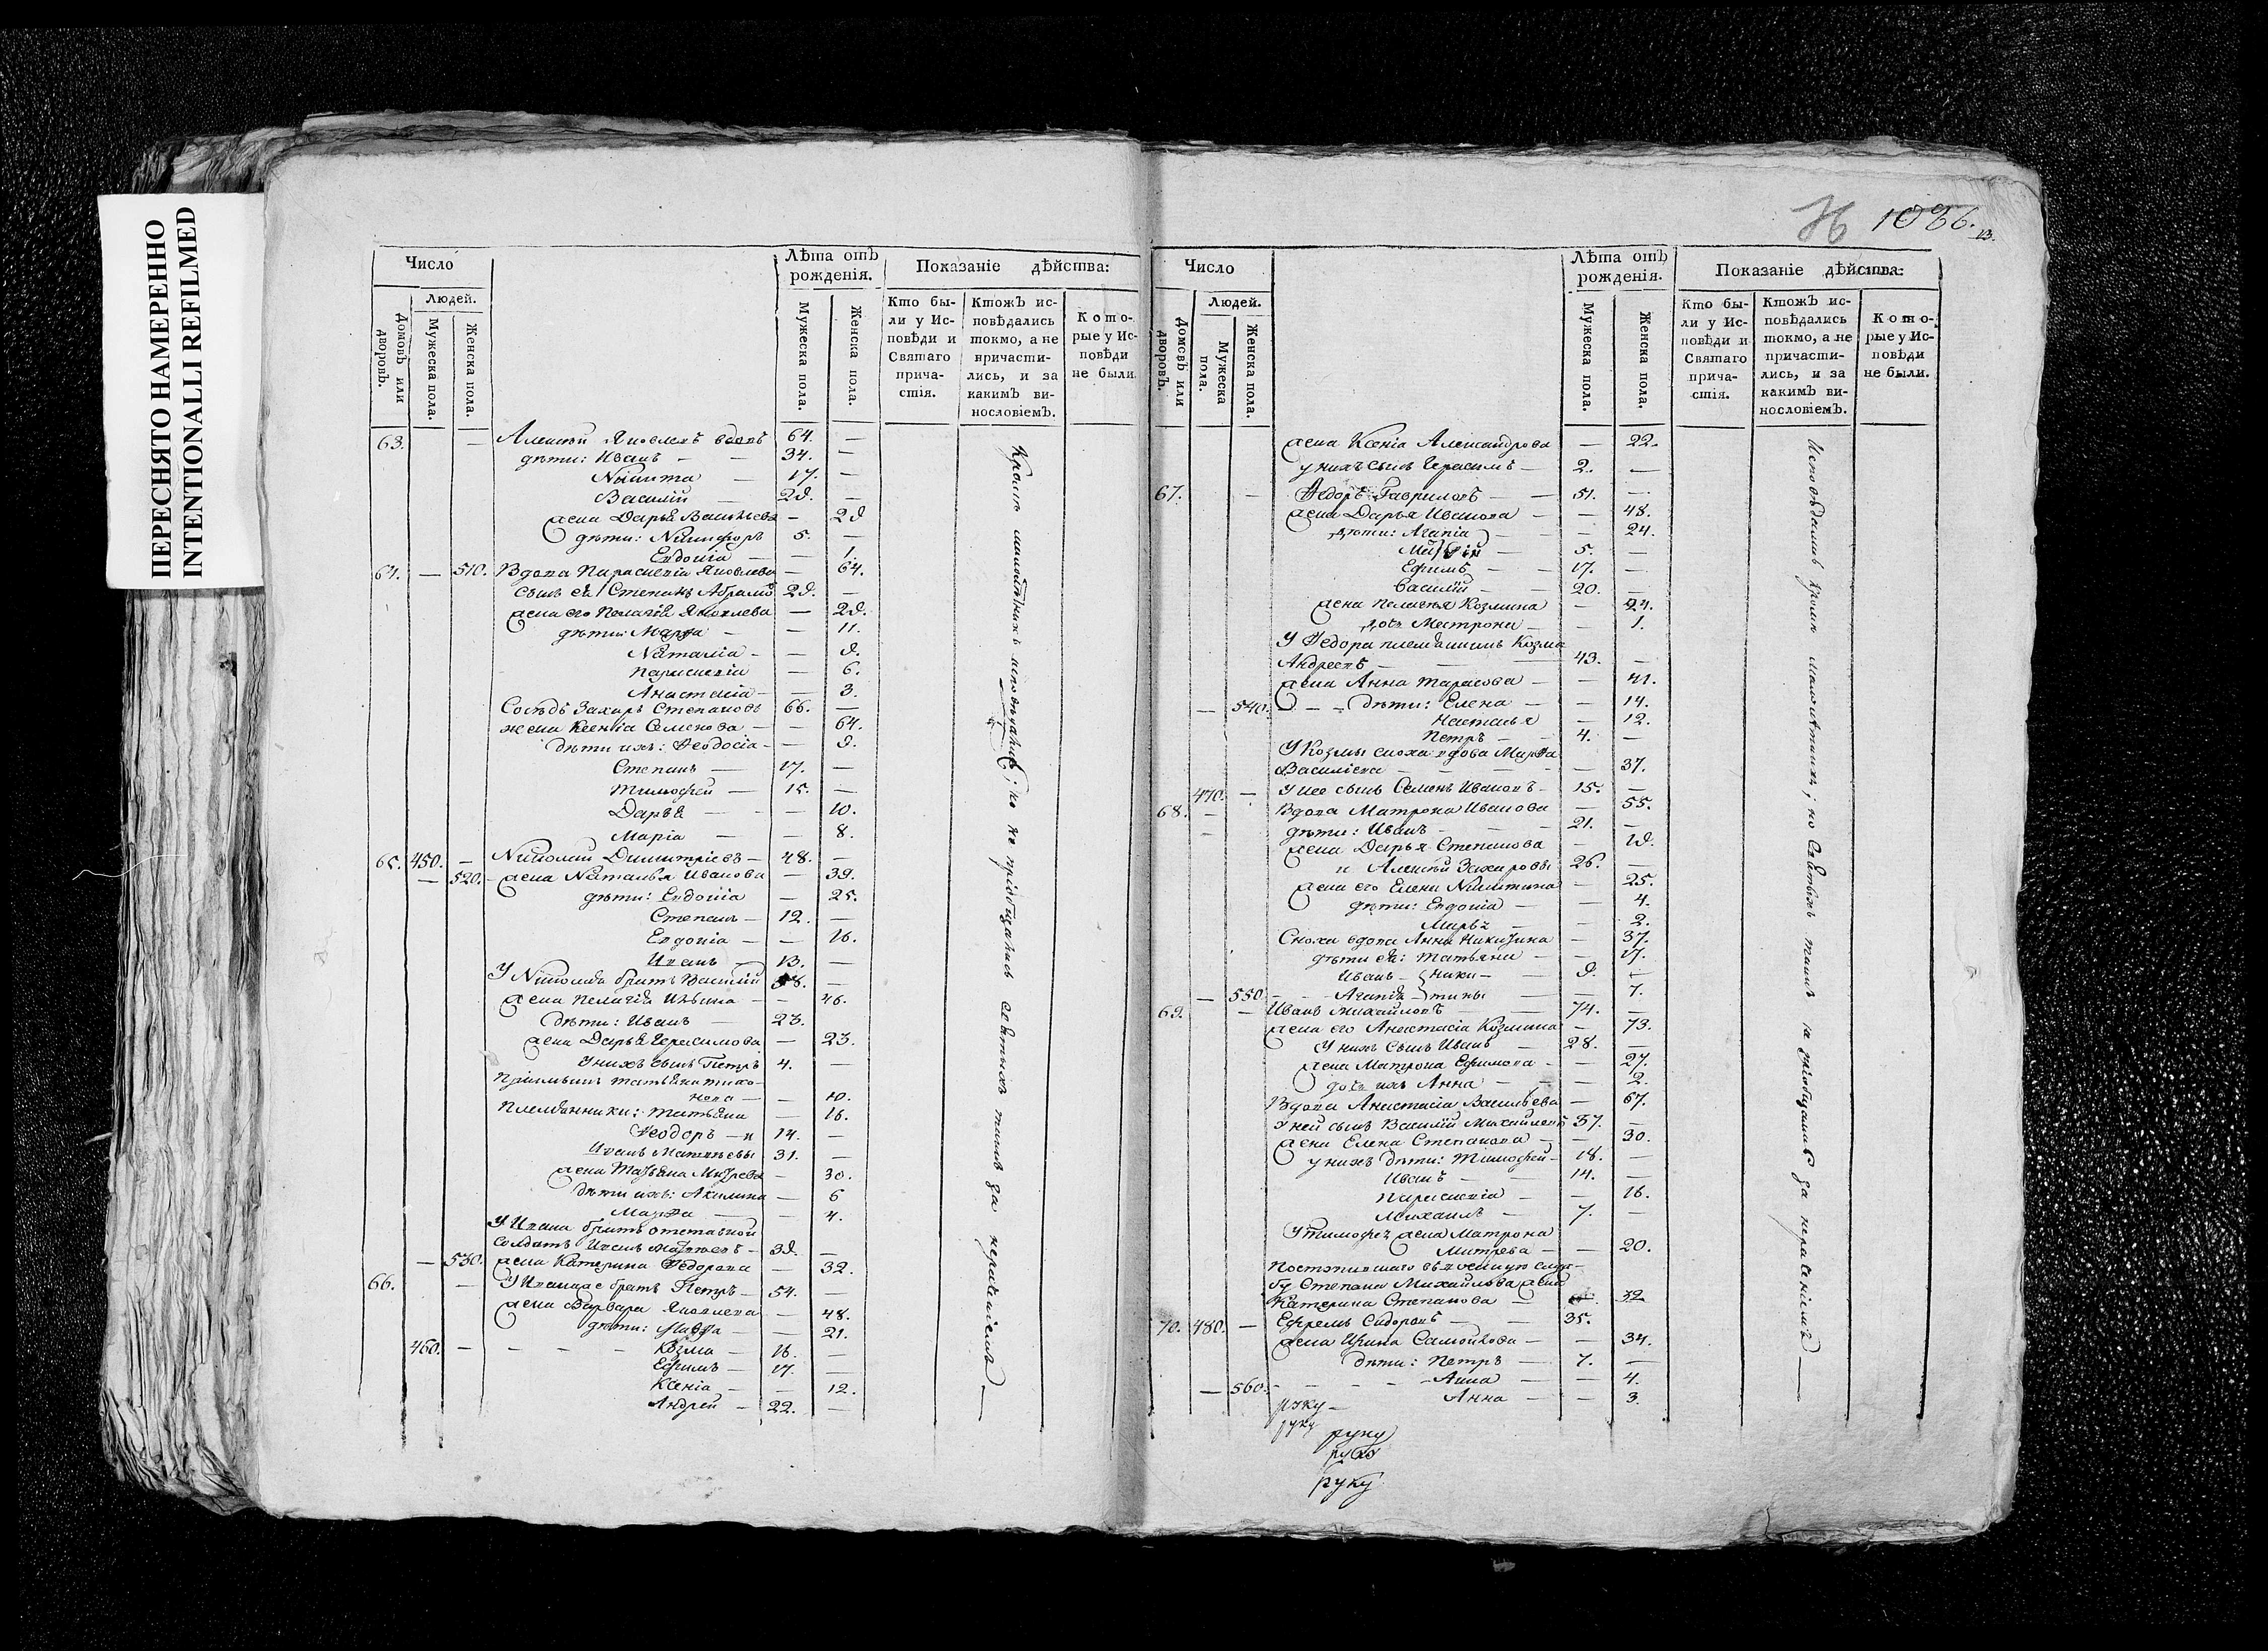 ПЕРЕСНЯТО НАМЕРЕННО
INTENTIONALLI REFILMED
1086.
13.
Число
Людей.
Домовъ или дворовъ.
Мужеска пола.
Женска пола.
Лѣта отъ рожденія.
Мужеска пола.
Женска пола.
Показаніе дѣйства:
Кто были у Исповѣди и Святаго причастія.
Ктожъ исповѣдались токмо, а не причастились, и за какимъ винословіемъ.
Которые у Исповѣди не были.
63. — Алексѣй Яковлевъ вдовъ 64. —
дѣти: Иванъ — — 34. —
Никита — 17. —
Василій — 29. —
жена Дарья Васильева — 29
дѣти: Никифоръ 5. —
Евдокія — — 1.
64. — 510. Вдова Параскевія Яковлева — 64.
сынъ ея Степанъ Абрамов 29. —
жена его Пелагія Яковлева — 29.
дѣти: Марѳа — — 11.
Наталія — — 9.
Параскевія — 6.
Анастасія — — 3.
Сосѣдъ Захаръ Степановъ 66. —
жена Ксенія Семенова — — 64.
дѣти ихъ: Ѳеодосія — — 9.
Степанъ — 17. —
Тимоѳей — 15. —
Дарья — — 10.
Марія — — 8.
65. 450. — Николай Димитріевъ — 48. —
— 520. — жена Наталья Иванова — 39.
дѣти: Евдокія — 25.
Степанъ — 12. —
Евдокія — — 16.
Иванъ — 13. —
У Николая братъ Василій 38. —
жена Пелагія Ильина — — 46.
дѣти: Иванъ — 23.
жена Дарья Герасимова — 23.
У нихъ сынъ Петръ 4. —
Пріимышъ Татьяна Тихо-
нова — — 10.
Племянники: Татьяна — 16.
Ѳеодоръ — и 14. —
Иванъ Матвѣевы 31. —
жена Татьяна Митрева — 30.
дѣти ихъ: Акилина — 6
Марѳа — — 4.
У Ивана братъ отставной
солдатъ Иванъ Матвѣевъ — 39. —
— 530. жена Катерина Ѳедорова — 32.
66. — У Ивана же братъ Петръ — 54. —
жена Варвара Яковлева — 48.
дѣти: Марѳа — — 21.
460. — — — — Козма — 16. —
Ефимъ — 17. —
Ксенія — — 12.
Андрей — 22. —
Кромѣ малолѣтнихъ исповѣдались; но не пріобщались святыхъ таинъ за нерадѣніемъ —
Число
Людей.
Домовъ или дворовъ.
Мужеска пола.
Женска пола.
Лѣта отъ рожденія.
Мужеска пола.
Женска пола.
Показаніе дѣйства:
Кто были у Исповѣди и Святаго причастія.
Ктожъ исповѣдались токмо, а не причастились, и за какимъ винословіемъ.
Которые у Исповѣди не были.
жена Ксенія Александрова — 22.
у нихъ сынъ Герасимъ — 2. —
67. — Ѳедоръ Гавриловъ — — 51. —
жена Дарья Иванова — — 48.
дѣти: Агапія — — 24.
5. —
Ефимъ — — 17. —
Василій — — 20. —
жена Пелагья Козмина — 24.
дочь Матрона — — 1.
У Ѳедора племянникъ Козма
Андреевъ — — — 43. —
жена Анна Тарасова — — 41.
— 540. — — дѣти: Елена — — 14.
Наталья — 12.
Петръ — — 4. —
У Козмы сноха вдова Марѳа
Василіева — — — — 37.
470. — У нее сынъ Семенъ Ивановъ — 15. —
68. — Вдова Матрона Иванова — 55.
дѣти: Иванъ — — — 21. —
жена Дарья Степанова — 19.
и Алексѣй Захаровы 26. —
жена его Елена Никитина — 25.
дѣти: Евдокія — — 4.
Марья — — 2.
Сноха вдова Анна Никитина — 37.
дѣти ея: Татьяна — — 17.
Иванъ — Ники — 9. —
— 550 — — Агапія — тины — — 7.
69. — Иванъ Михайловъ — — 74. —
жена его Анастасія Козмина — 73.
У нихъ сынъ Иванъ — 28. —
жена Матрона Ефимова — — 27.
дочь ихъ Анна — — 2.
Вдова Анастасія Васильева — 67.
У ней сынъ Василій Михайловъ 37. —
жена Елена Степанова — — 30.
у нихъ дѣти: Тимоѳей — 18. —
Иванъ — — 14. —
Параскевія — — 16.
Михаилъ — 7. —
У Тимоѳея жена Матрона
Митрева — — 20.
Поступившаго въ военную служ-
бу Степана Михайлова жена
Катерина Степанова — 32
70. 480. — Ефремъ Сидоровъ — — 35. —
жена Ирина Самойлова — — 34.
дѣти: Петръ — 7. —
— 560. — — — — Анна — — 4.
Анна — — 3.
руку —
руку
руку
руку
Исповѣдались кромѣ малолѣтнихъ; но святыхъ таинъ не пріобщались за нерадѣніемъ —